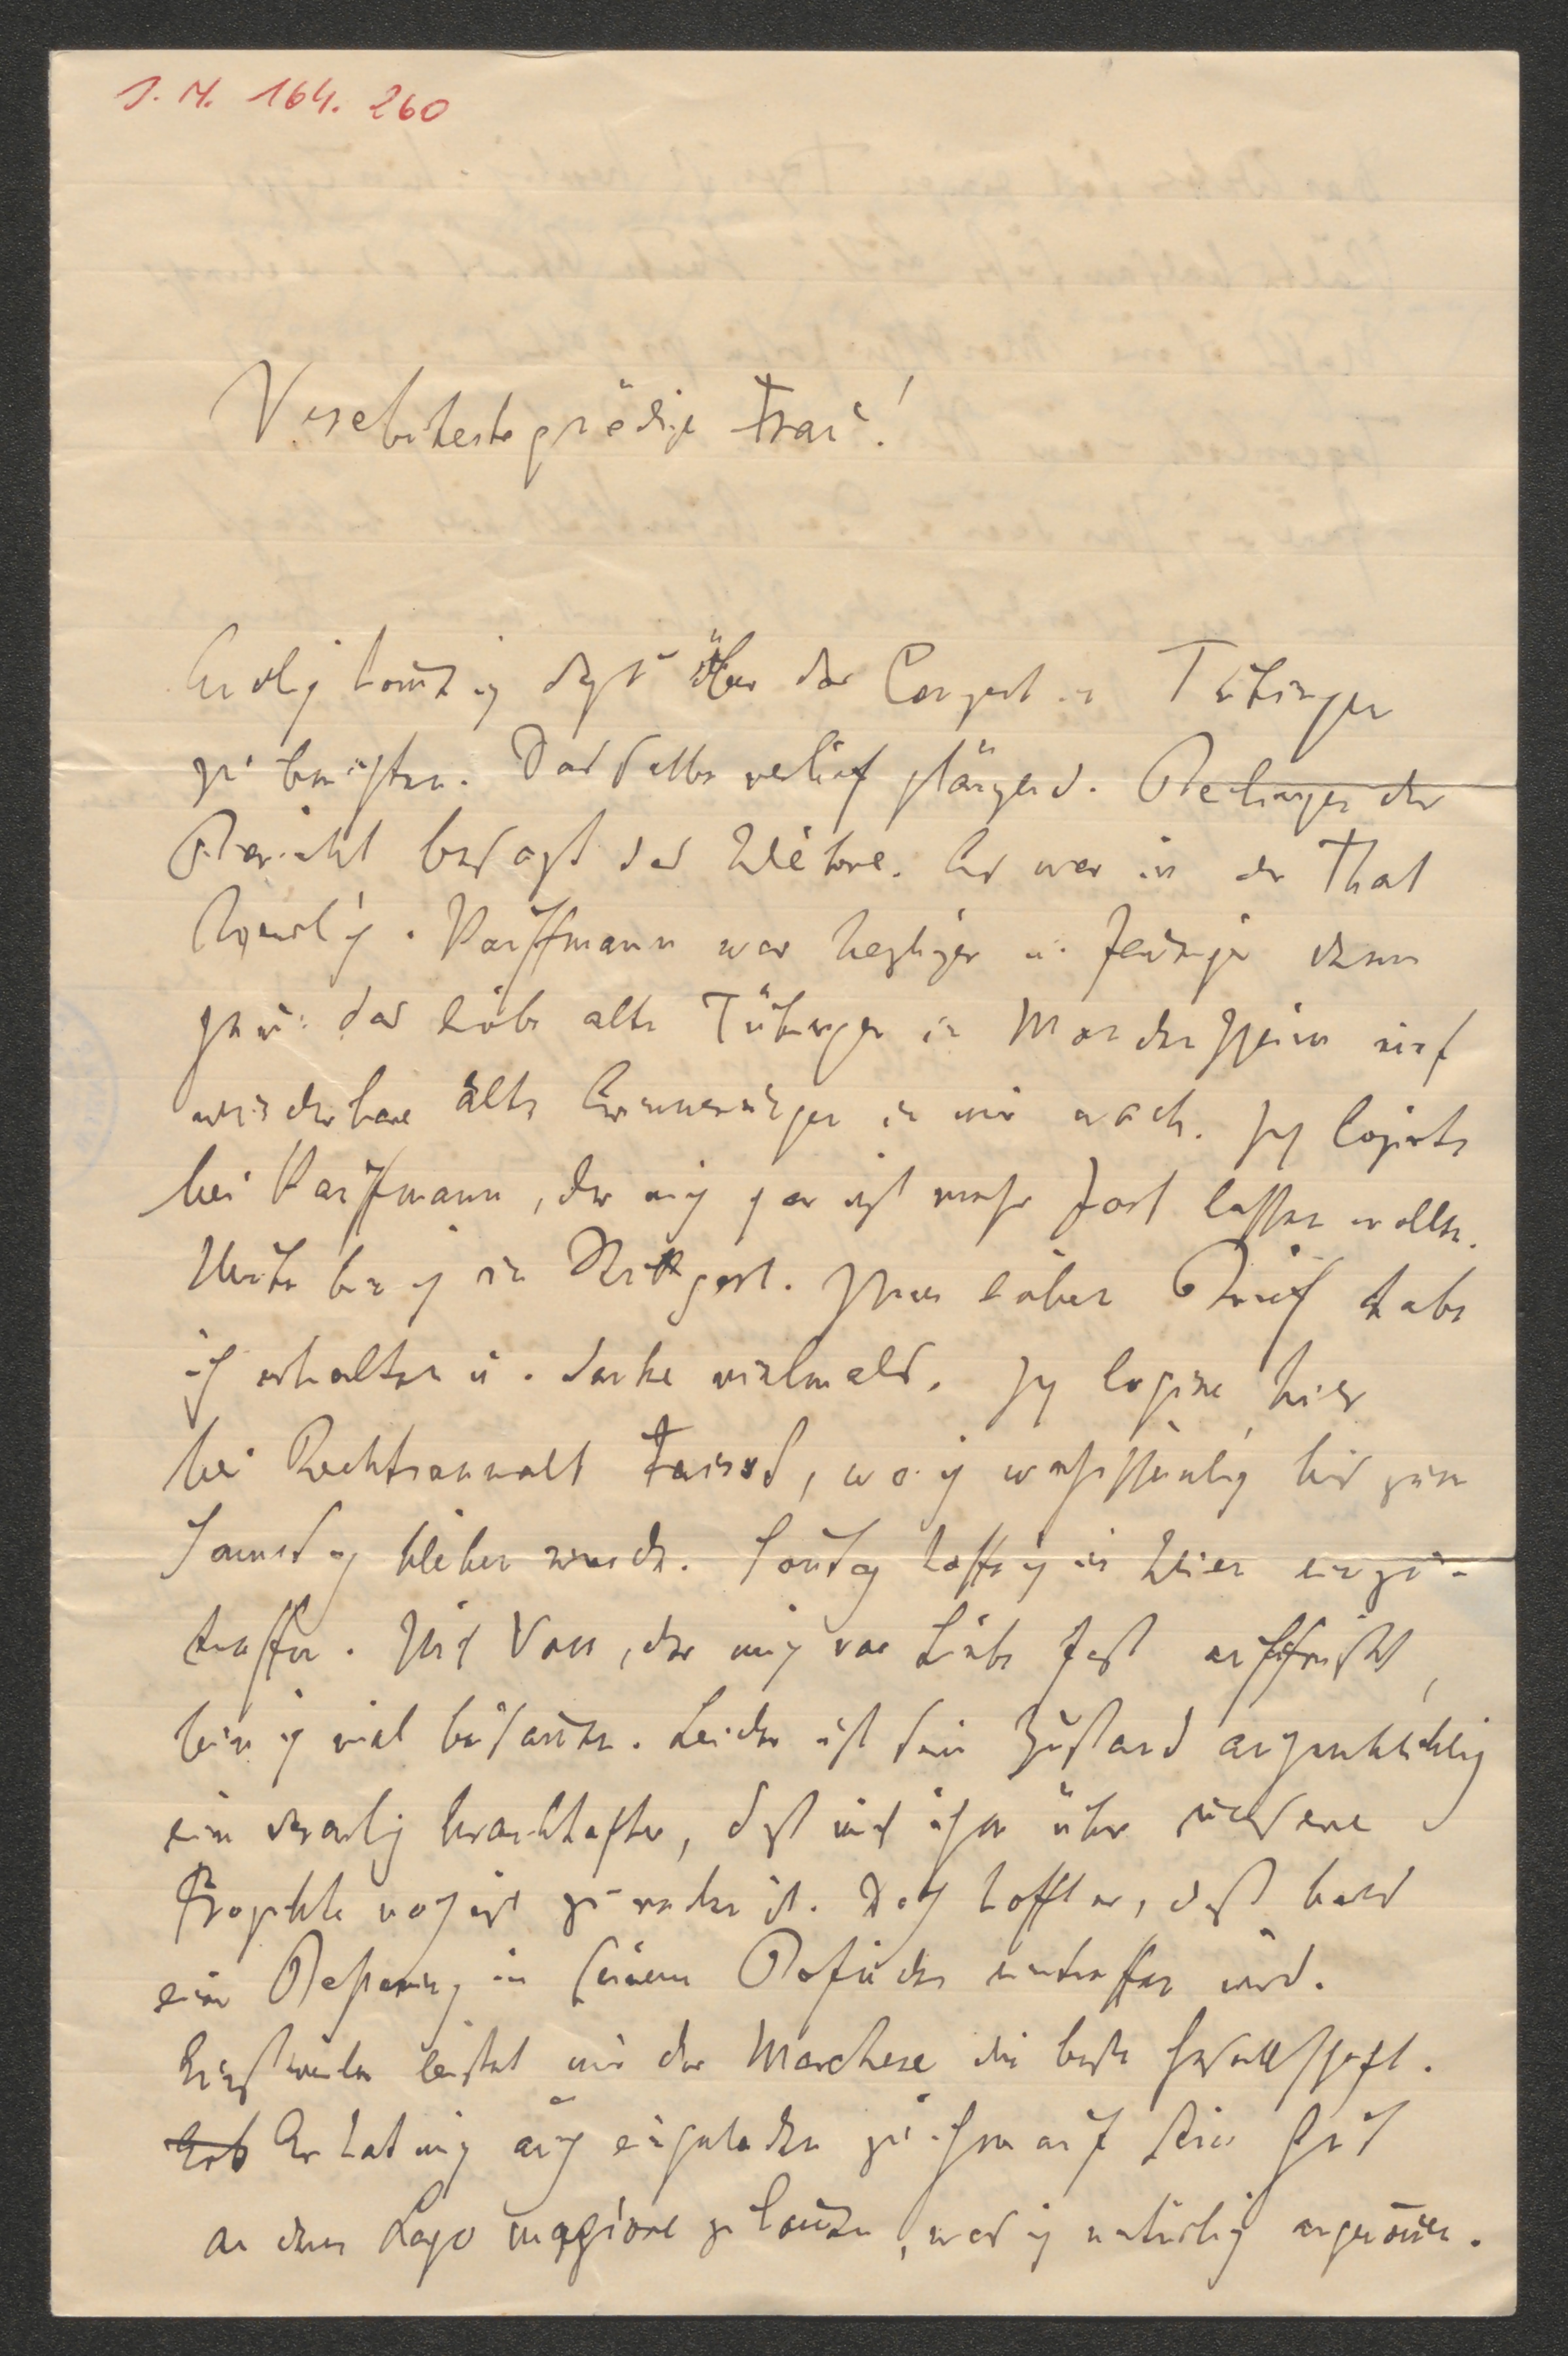 J. N. 164. 260
Verehrteste gnädige Frau!
Endlich komm ich dazu über das Concert in Tübingen
zu berichten. Dasselbe verlief glänzend. Beiliegender
Bericht besagt das Weitere. Es war in der That
Kauffmann war herziger u. feuriger denn
je u: das liebe alte Tübingen in Mondenschein rief
wunderbare alte Erinnerungen in mir wach. Ich logirte
bei Kauffmann, der mich gar nicht mehr fort lassen wollte.
Heute bin ich in Stuttgart. Ihren lieben Brief habe
ich erhalten u. danke vielmals. Ich logire hier
bei Rechtsanwalt Faisst, wo ich wahrscheinlich bis zum
Samstag bleiben werde. Sontag hoffe ich in Wien einzu-
treffen. Mit Voss, der mich vor Liebe fast auffrisst,
bin ich viel beisammen. Leider ist sein Zustand augenblicklich
ein derartig krankhafter, dass mit ihm über unsere
Projekte noch nicht zu reden ist. Doch hofft er, dass bald
eine Besserung in seinem Befinden eintreffen wird.
Einstweilen leistet mir der Marchese die beste Gesellschaft.
Er hat mich auch eingeladen zu ihm auf sein Gut
an dem Lago magiore zu kommen, was ich natürlich angenommen.